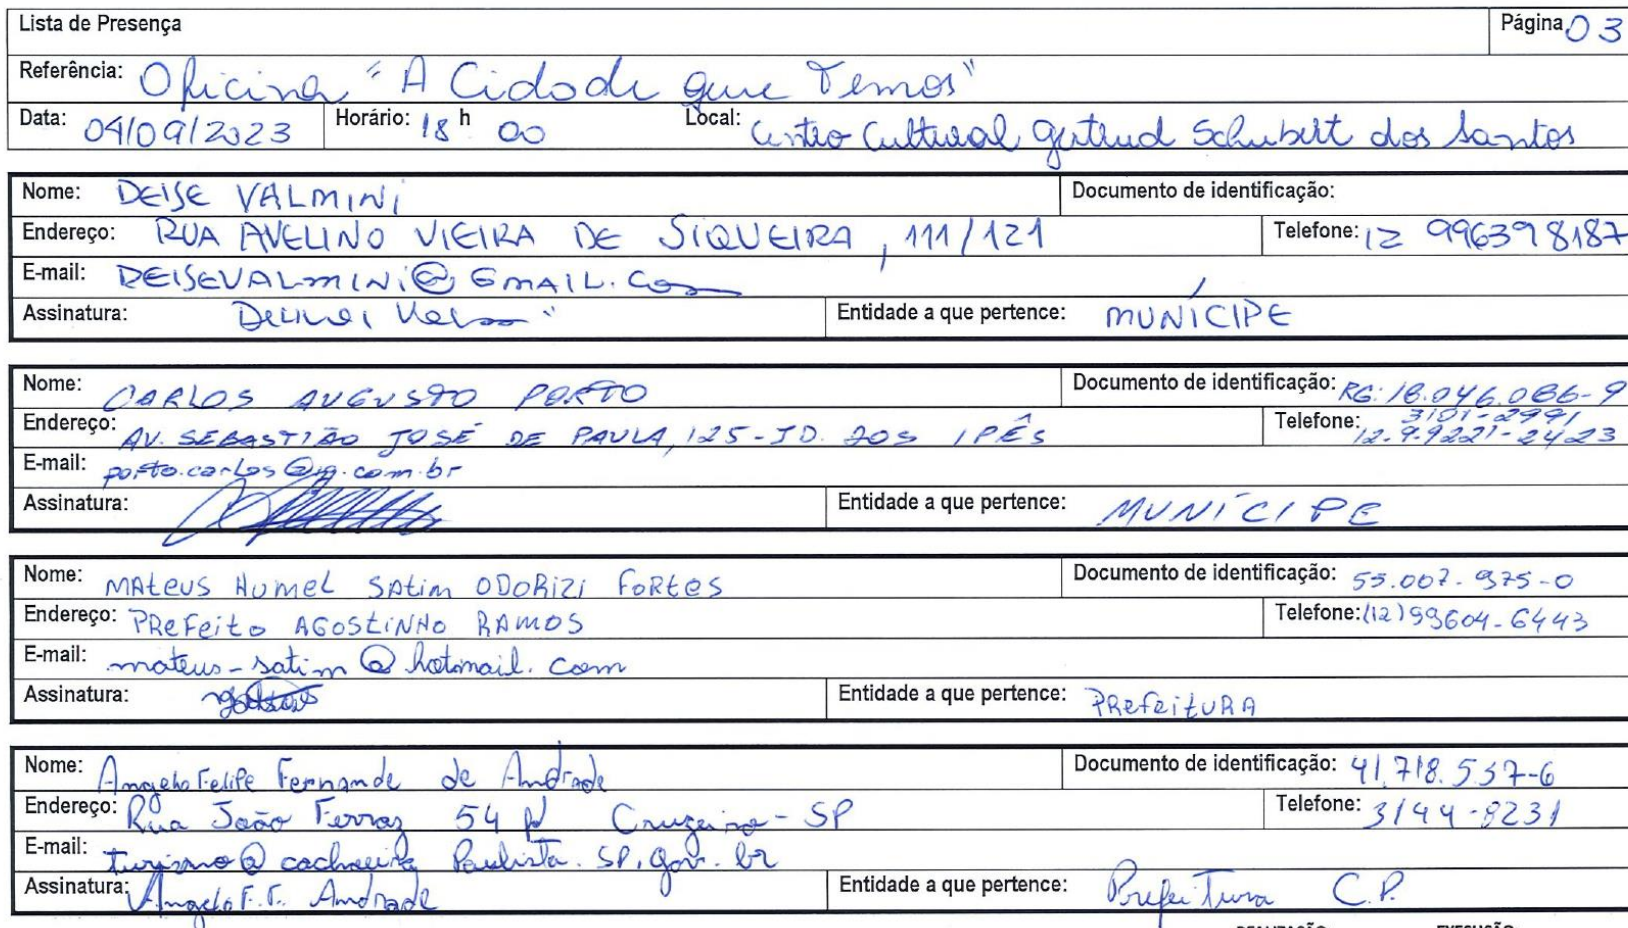 Lista de Presença Página 03
Referência: Oficina "A Cidade que Temos"
Data: 04/09/2023 Horário: 18 h 00 Local: Centro Cultural Gertrud Schubert dos Santos
Nome: DEISE VALMINI Documento de identificação:
Endereço: RUA AVELINO VIEIRA DE SIQUEIRA, 111/121 Telefone: 12 996398187
E-mail: DEISEVALMINI@GMAIL.COM
Assinatura: Entidade a que pertence: MUNÍCIPE
Nome: CARLOS AUGUSTO PORTO Documento de identificação: RG: 18.046.086-9
Endereço: AV. SEBASTIÃO JOSÉ DE PAULA, 125-JD. DOS IPÊS Telefone: 3101-2991 12-9.9221-2423
E-mail: porto.carlos@ig.com.br
Assinatura: Entidade a que pertence: MUNÍCIPE
Nome: MAteus HUMEL SAtim ODORIZI FORtes Documento de identificação: 55.007.975-0
Endereço: PRefeito AGOStINHO RAMOS Telefone: (12)99604-6443
E-mail: mateus-satim@hotmail.com
Assinatura: Entidade a que pertence: PRefeituRA
Nome: Angelo Felipe Fernande de Andrade Documento de identificação: 41.718.537-6
Endereço: Rua João Ferraz 54 Cruzeiro-SP Telefone: 3144-8231
E-mail: turismo@cachoeira Paulista.SP.gov.br
Assinatura: Angelo F.F. Andrade Entidade a que pertence: Prefeitura C.P.
REALIZAÇÃO EXECUÇÃO